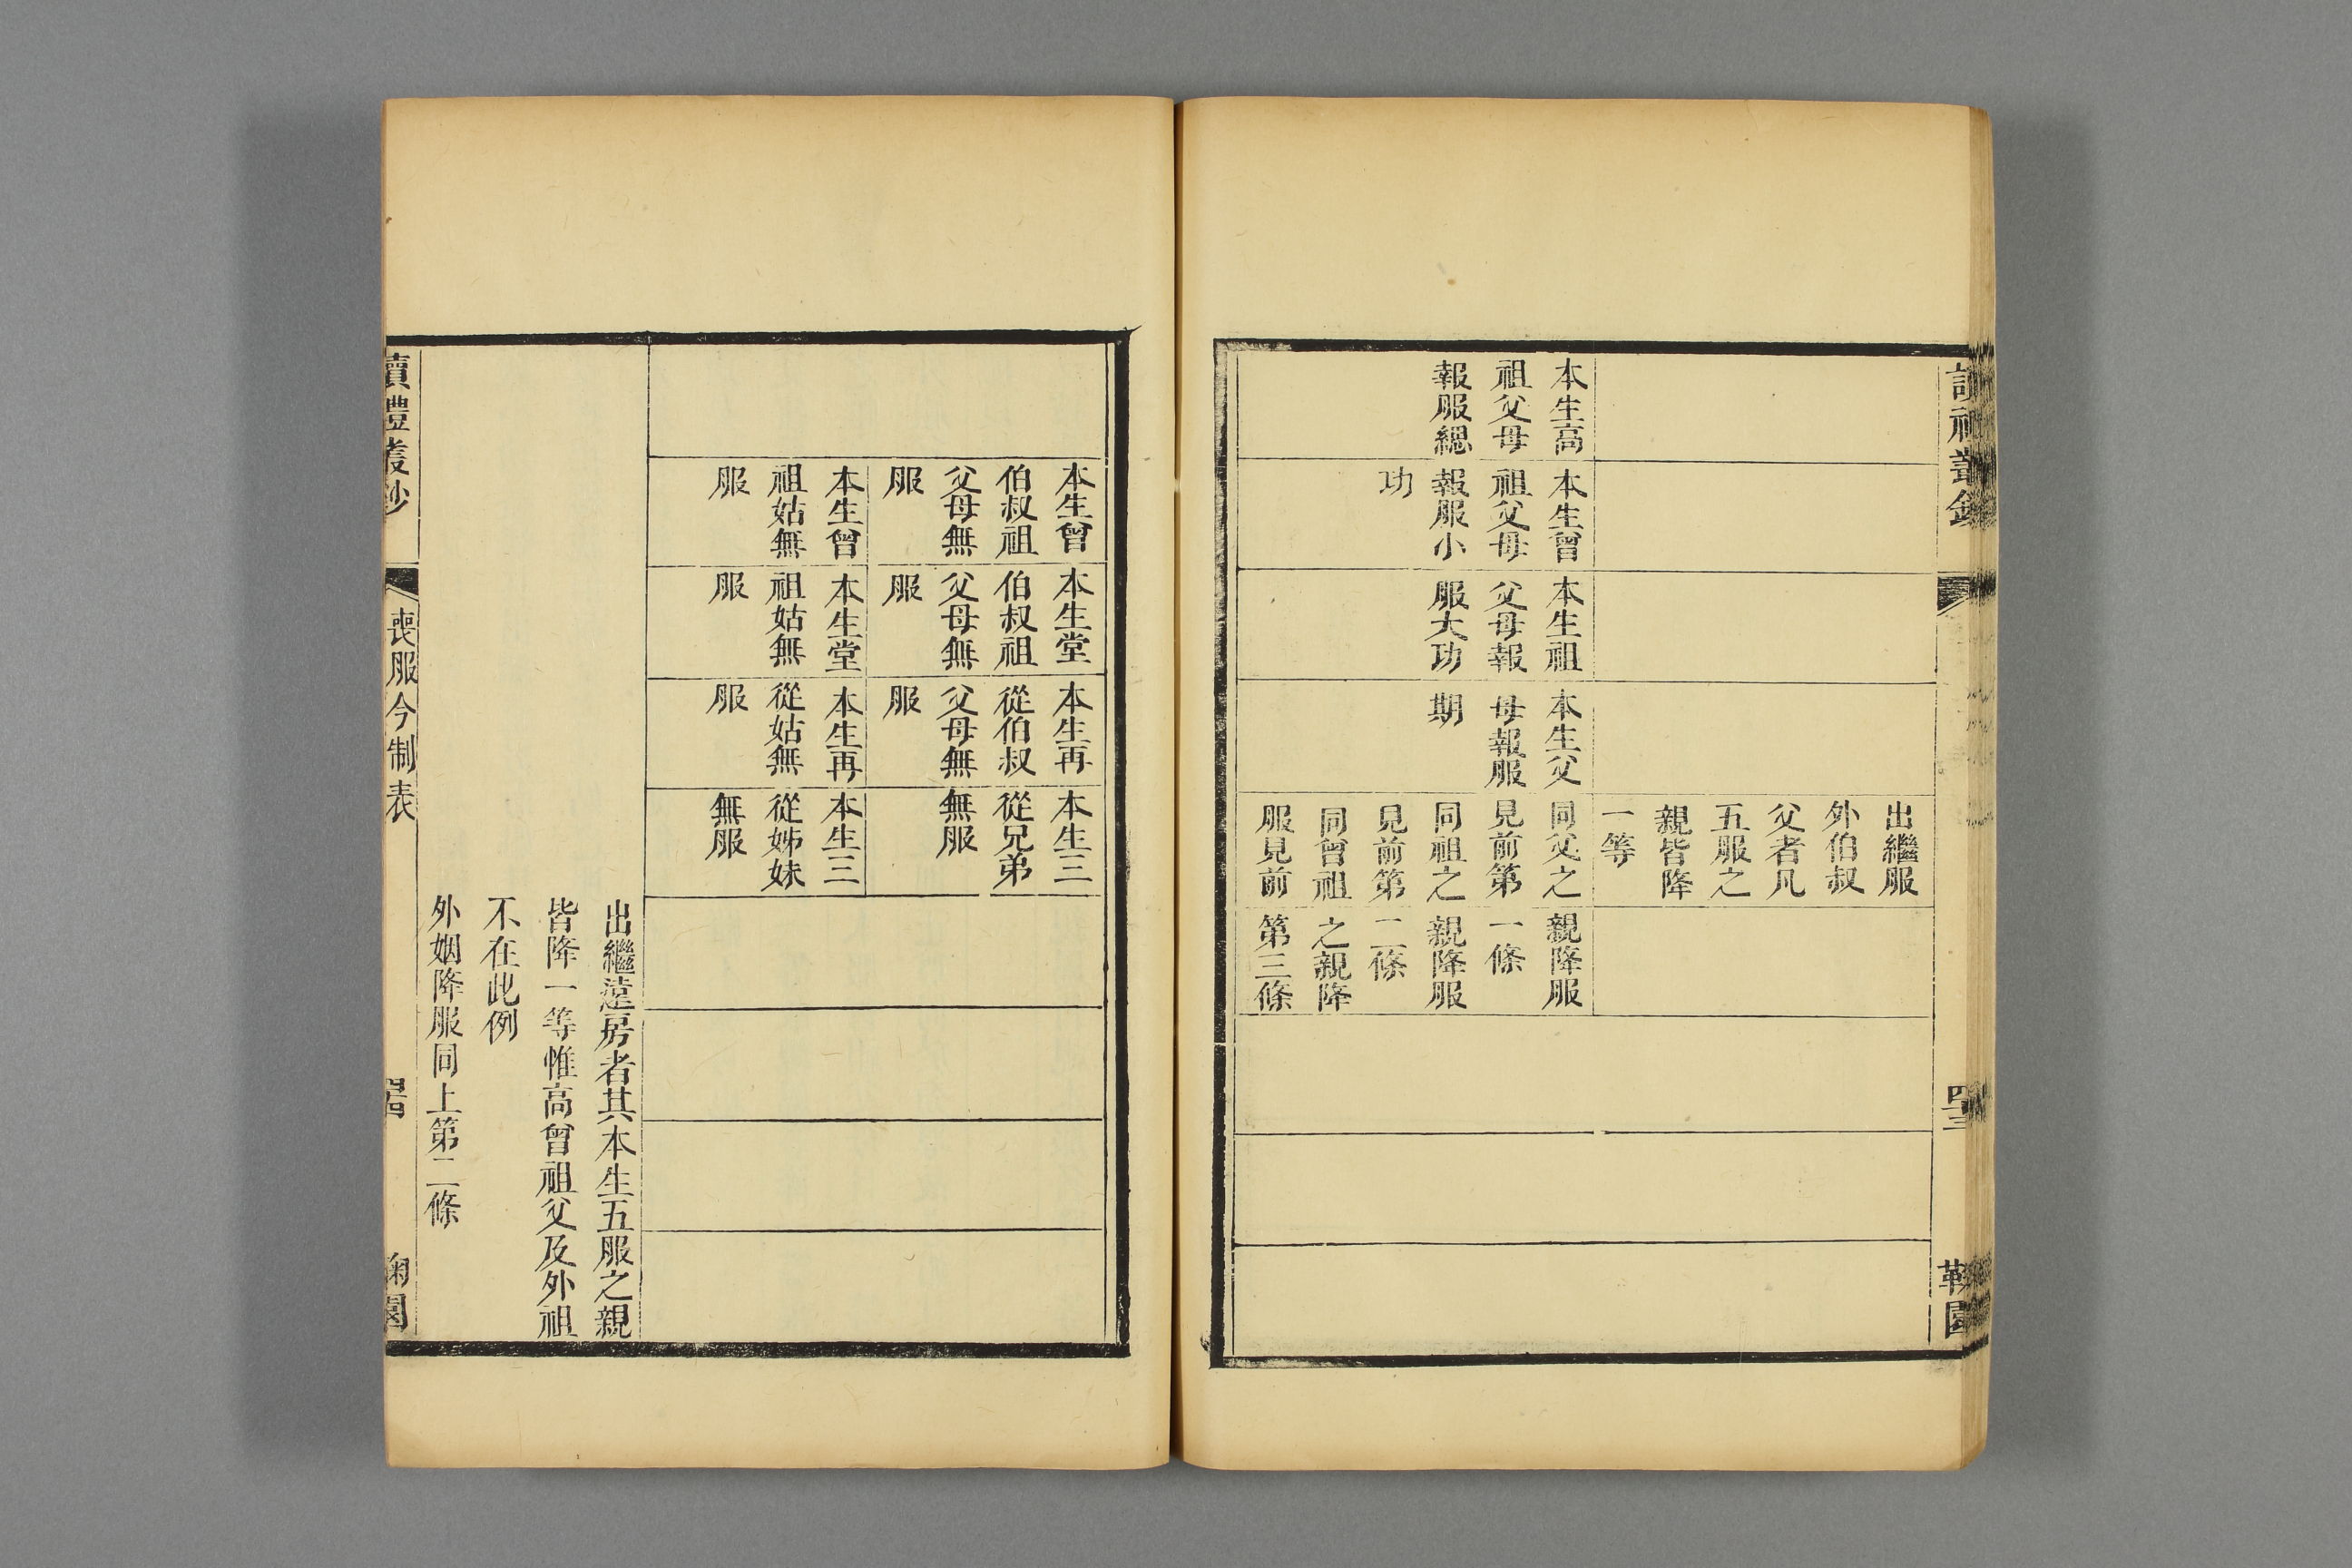 出繼服
外伯叔
父者凡
五服之
親皆降
一等
本生高
祖父母
報服緦
本生曾
祖父母
報服小
功
本生祖
父母報
服大功
本生父
母報服
期
同父之親降服
見前第一條
同祖之親降服
見前第二條
同曾祖之親降
服見前第三條
本生曾
伯叔祖
父母無
服
本生堂
伯叔祖
父母無
服
本生再
從伯叔
父母無
服
本生三
從兄弟
無服
本生曾
祖姑無
服
本生堂
祖姑無
服
本生再
從姑無
服
本生三
從姊妹
無服
出繼遠房者其本生五服之親
皆降一等惟高曾祖父及外祖
不在此例
外姻降服同上第二條
讀禮叢鈔
喪服今制表